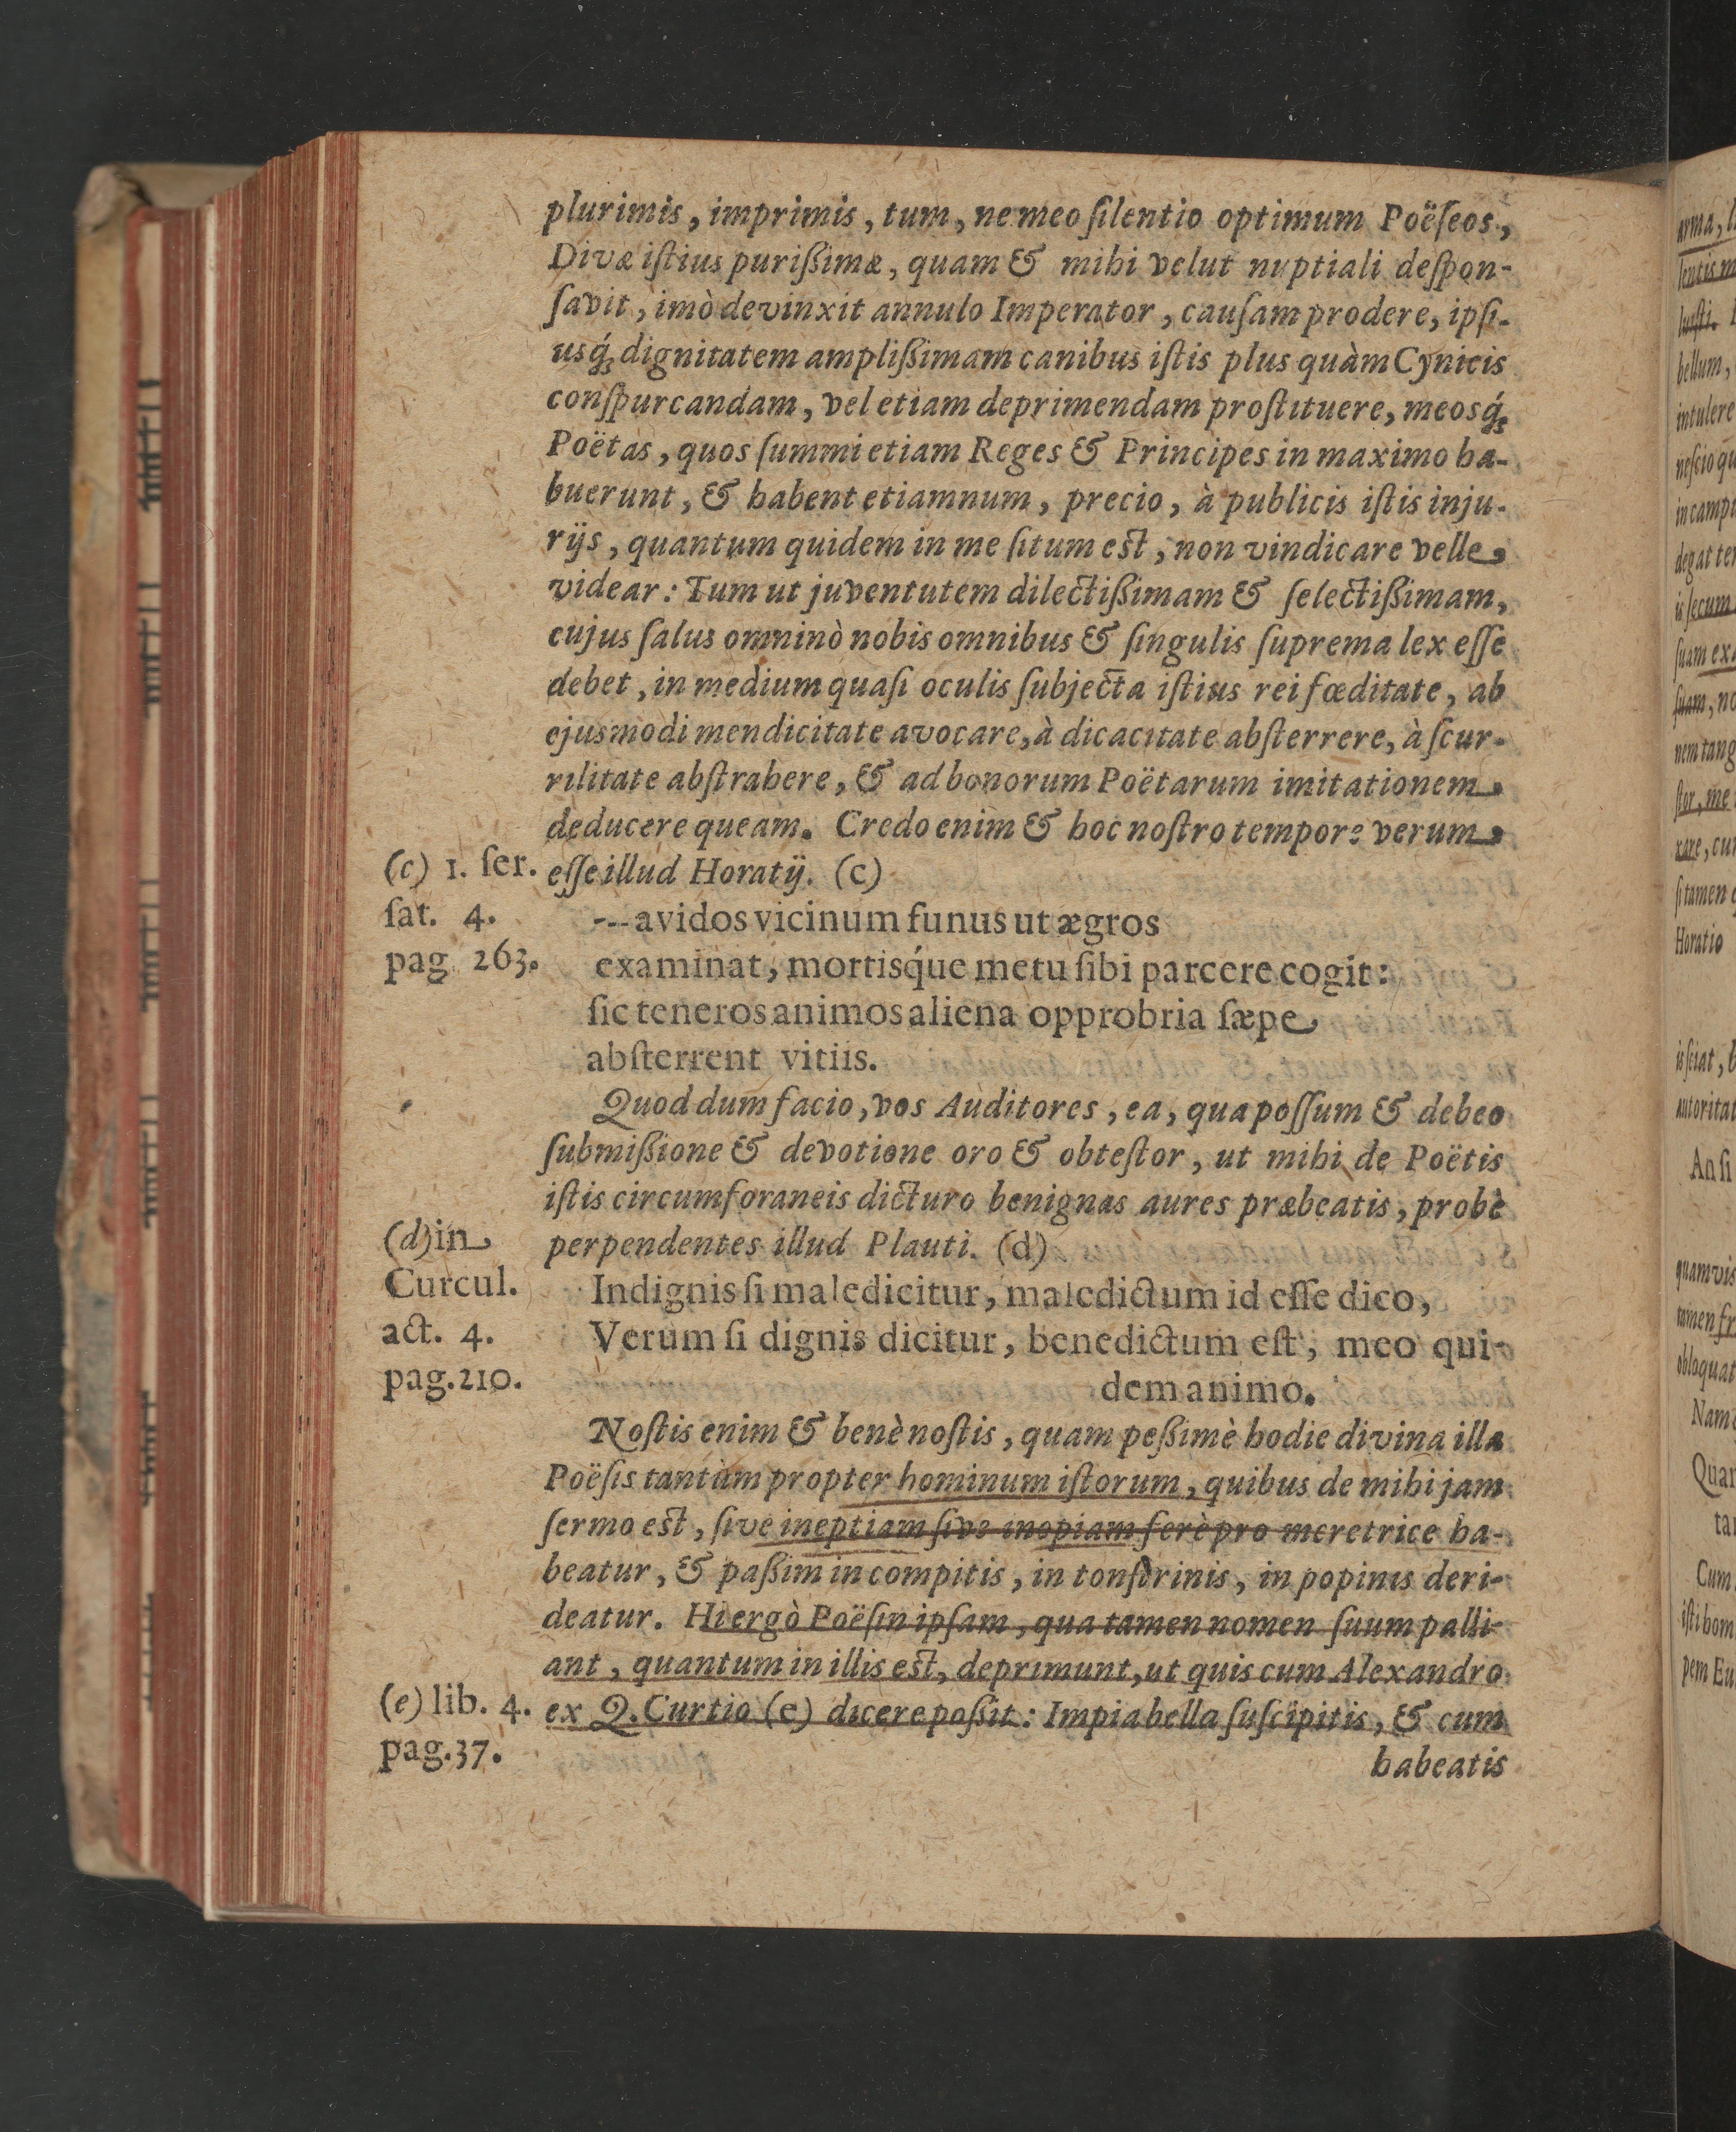 plurimis, imprimis, tum, ne meo ſilentio optimum Poëſeos,
Divæ iſtius purißimæ, quam & mihi velut nuptiali deſpon-
ſavit, imò devinxit annulo Imperator, cauſam prodere, ipſi-
usq́; dignitatem amplißimam canibus iſtis plus quàm Cynicis
conſpurcandam, vel etiam deprimendam proſtituere, meosq́;
Poëtas, quos ſummi etiam Reges & Principes in maximo ha-
buerunt, & habent etiamnum, precio, à publicis iſtis inju-
rijs, quantum quidem in me ſitum est, non vindicare velle
videar: Tum ut juventutem dilectißimam & ſelectißimam,
cujus ſalus omninò nobis omnibus & ſingulis ſuprema lex eſſe
debet, in medium quaſi oculis ſubjecta iſtius rei fœditate, ab
ejusmodi mendicitate avocare, à dicacitate abſterrere, à ſcur-
rilitate abſtrahere, & ad bonorum Poëtarum imitationem
deducere queam. Credo enim & hoc noſtro tempore verum
eſſe illud Horatij. (c)
(c) 1. ſer.
ſat. 4.
pag 263.
--- avidos vicinum funus ut ægros
examinat, mortisq́ue metu ſibi parcere cogit:
ſic teneros animos aliena opprobria ſæpe
abſterrent vitiis.
Quod dum facio, vos Auditores, ea, qua poſſum & debeo
ſubmißione & devotione oro & obteſtor, ut mihi de Poëtis
iſtis circumforaneis dicturo benignas aures præbeatis, probè
perpendentes illud Plauti. (d)
(d) in
Curcul.
act. 4.
pag. 210.
Indignis ſi maledicitur, maledictum id eſſe dico,
Verum ſi dignis dicitur, benedictum eſt, meo qui-
dem animo.
Noſtis enim & benè noſtis, quam peßimè hodie divina illa
Poëſis tantùm propter hominum iſtorum, quibus de mihi jam
ſermo est, ſive ineptiam ſive inopiam ferè pro meretrice ha-
beatur, & paßim in compitis, in tonſtrinis, in popinis deri-
deatur. Hi ergò Poëſin ipſam, qua tamen nomen ſuum palli-
ant, quantum in illis est, deprimunt, ut quis cum Alexandro
ex Q. Curtio (e) dicere poßit: Impia bella ſuſcipitis, & cum
(e) lib. 4.
pag. 37.
habeatis
arma,
lentis
bellum,
intulere
neſcio
in camp
ſecum
ſuam
ſuam, no
nem tang
ſtor, me
xare, cur
ſi tamen
Horatio
is ſciat,
autoritat
An ſi
quamvis
tamen fr
obloquat
Nam
Quar
tar
Cum
iſti hom
pem Eu